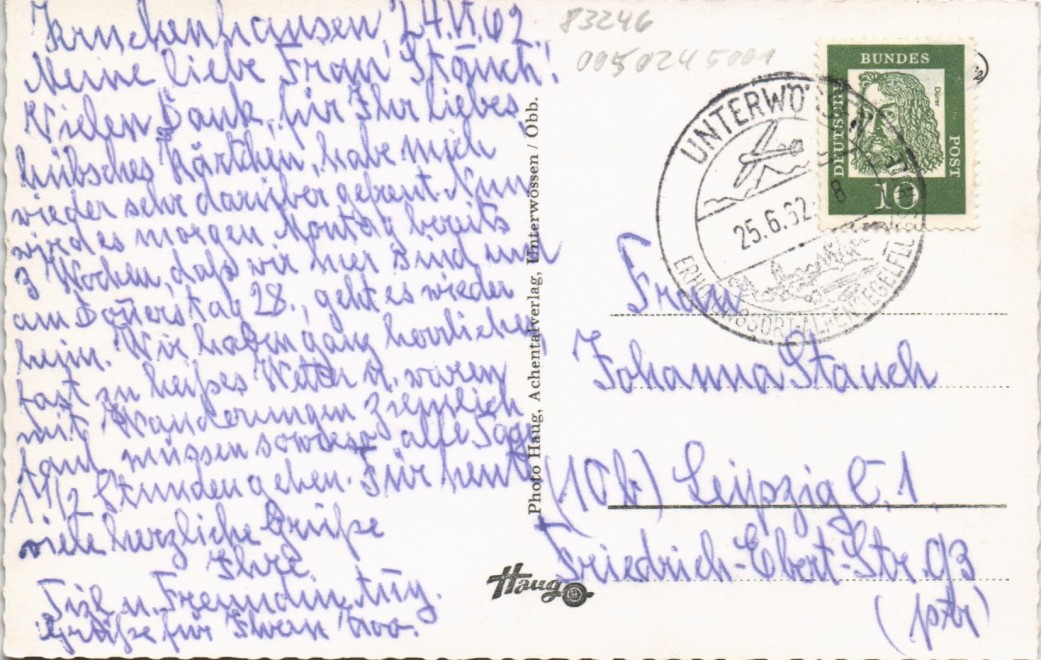 24.VI.62.
Meine liebe Frau Stauch!
Vielen Dank für Ihr liebes,
hübsches Kärtchen, habe mich
wieder sehr darüber gefreut. Nun
wird es morgen Montag bereits
3 Wochen, daß wir hier sind und
am 28., geht es wieder
heim. Wir haben ganz herrliches,
fast zu heißes Wetter u. waren
mit Wanderungen ziemlich
faul, müssen sowieso alle Tage
1 1/2 Stunden gehen. Für heute
viele herzliche Grüße
Ihre
Grüße für Ihren
83246
0050245001
Photo Haug, Achentalverlag, Unterwössen / Obb.
Haug
UNTERWÖSSEN
25.6.62.-8
ERHOLUNGSORT-ALPENSEGELFLUG
DEUTSCHE
BUNDES
POST
Dürer
10
Frau
Johanna Stauch
(10b) Leipzig C. 1
Friedrich-Ebert-Str. 93
(ptr)